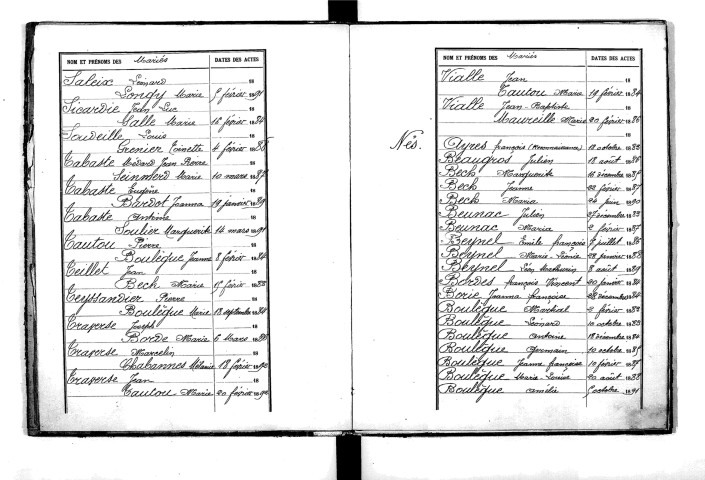 NOM ET PRÉNOMS DES Mariés DATES DES ACTES
Saleix Léonard 18
Longy Marie 5 février 1891
Sicardie Jean Luc 18
Galle Marie 16 février 1884
Soudeille Louis 18
Grenier Toinette 4 février 1888
Tabaste Médard Jean Pierre 18
Seinmerd Marie 10 mars 1887
Tabaste Eugène 18
Bardot Jeanna 19 janvier 1889
Tabaste Antoine 18
Soulier Marguerite 14 mars 1891
Tautou Pierre 18
Boulègue Jeanne 8 février 1886
Teillet Jean 18
Bech Marie 15 février 1885
Teyssandier Pierre 18
Boulègue Marie 13 septembre 1884
Traverse Joseph 18
Borde Marie 6 Mars 1889
Traverse Marcelin 18
Chabannes Mélanie 18 février 1890
Traverse Jean 18
Tautou Marie 20 février 1890
NOM ET PRÉNOMS DES Mariés DATES DES ACTES
Vialle Jean 18
Tautou Marie 19 février 1884
Vialle Jean-Baptiste 18
Maureille Marie 20 février 1886
Nés.
Ayres françois (reconnaissance) 18 octobre 1883
Beaugros Julien 18 août 1886
Bech Marguerite 16 décembre 1885
Bech Jeanne 22 février 1887
Bech Maria 24 juin 1890
Beunac Julien 27 décembre 1883
Beunac Maria 2 février 1887
Beynel Emile françois 7 juillet 1886
Beynel Marie Léonie 28 janvier 1888
Beynel Léon 8 août 1889
Bordes françois Vincent 20 janvier 1884
Borie Jeanna françoise 28 décembre 1884
Boulègue Martial 2 février 1883
Boulègue Léonard 10 octobre 1883
Boulègue Antoine 18 décembre 1884
Boulègue Germain 10 octobre 1885
Boulègue Jeanne françoise 10 février 1887
Boulègue Marie-Louise 20 août 1888
Boulègue Amélie 5 octobre 1891